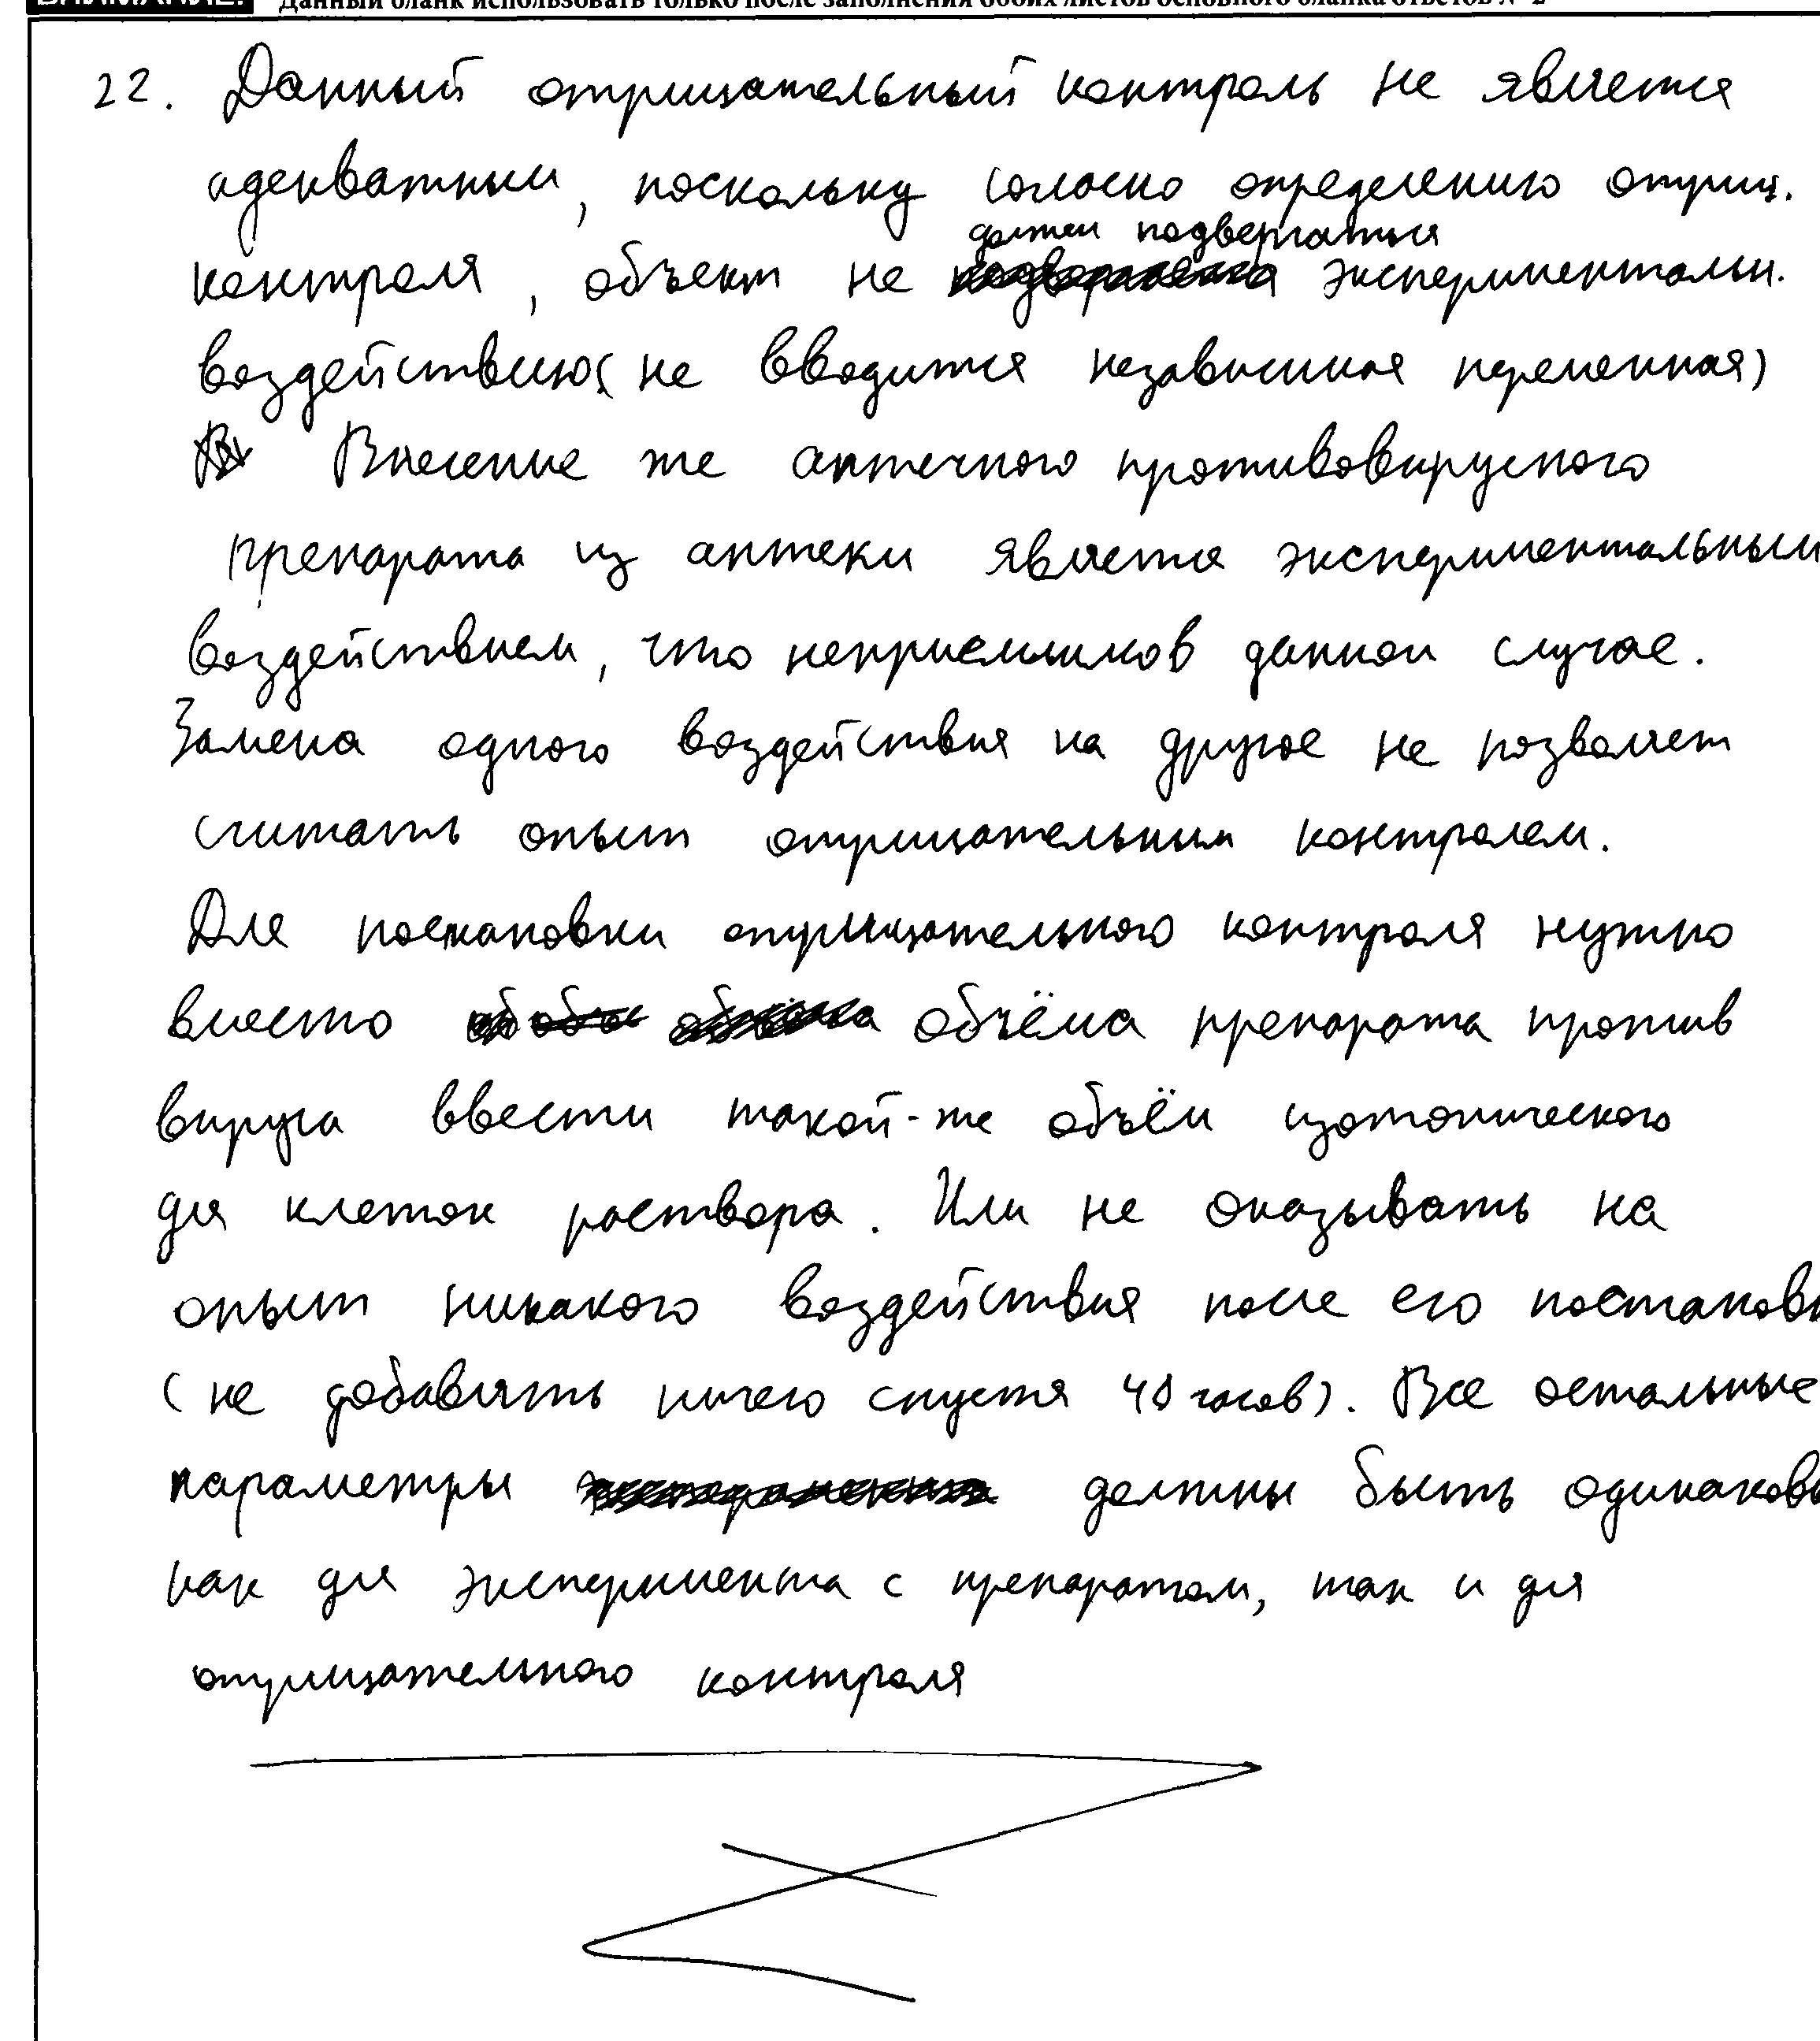 Данный бланк использовать только после заполнения обоих листов основного бланка ответов № 2
22. Данный отрицательный контроль не является
адекватным, поскольку согласно определению отриц.
должен подвергаться
контроля, объект не экспериментальн.
воздействию (не вводится независимая переменная)
Внесение же аптечного противовирусного
препарата из аптеки является экспериментальным
воздействием, что неприемлимо в данном случае.
Замена одного воздействия на другое не позволяет
считать опыт отрицательным контролем.
Для постановки отрицательного контроля нужно
вместо объёма препарата против
вируса ввести такой-же объём изотонического
для клеток раствора. Или не оказывать на
опыт никакого воздействия после его постановк
(не добавлять ничего спустя 48 часов). Все остальные
параметры должны быть одинаковы
как для эксперимента с препаратом, так и для
отрицательного контроля